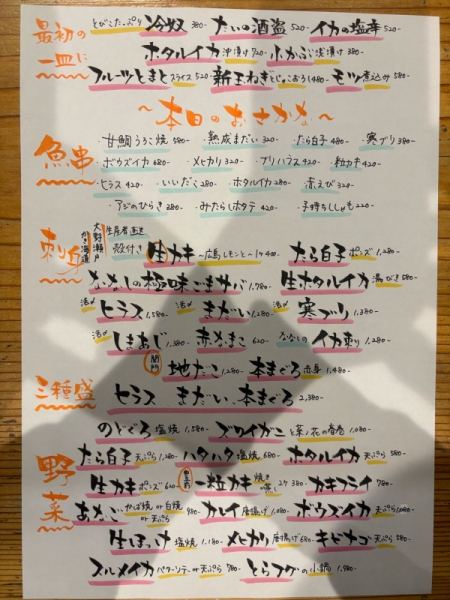 最初の一皿に
とびこたっぷり 冷奴 380- たいの酒盗 520- イカの塩辛 520-
ホタルイカ 沖漬け 720- 小かぶ 浅漬け 380-
フルーツとまと スライス 520- 新玉ねぎ とじょおろし 480- モツ煮込み 580-
〜本日のおさかな〜
魚串
・甘鯛うろこ焼 580- ・熟成まだい 320- ・たら白子 480- ・寒ブリ 380-
・ボウズイカ 680- ・メヒカリ 320- ・ブリハラス 420- ・粒カキ 420-
・ヒラス 420- ・いいだこ 280- ・ホタルイカ 280- ・赤えび 320-
・アジのひらき 380- ・みたらしホタテ 420- ・子持ちししゃも 220-
刺身
大野瀬戸 かき海道 生産者直送 殻付き 生カキ 〜広島レモンと〜 1ヶ 400-
たら白子 ポン酢 1,280-
ななしの極味ごまサバ 1,780- 生ホタルイカ 湯びき 580-
活〆 ヒラス 1,580- 活〆 まだい 1,280- 活〆 寒ブリ 1,380-
活〆 しまあじ 1,380- 赤なまこ 620- ななしの イカ刺り 1,280-
関門 地だこ 1,280- 本まぐろ 赤身 1,480-
三種盛 ヒラス まだい 本まぐろ 2,380-
野菜
のどぐろ 塩焼 1,580- ズワイガニ と菜ノ花の春巻 1,080-
たら白子 天ぷら 1,280- ハタハタ 塩焼 680- ホタルイカ 天ぷら 580-
生カキ ポン酢 600- 一粒カキ 焼き 2ケ 380- カキフライ 780-
あなご かば焼 or 白焼 or 天ぷら 980- カレイ 唐揚げ 1,080- ボウズイカ 天ぷら 1,080-
生ほっけ 塩焼 1,180- メヒカリ 唐揚げ 680- キビナゴ 天ぷら 580-
スルメイカ バターソテー or 天ぷら 780- とらフグの小鍋 1,980-